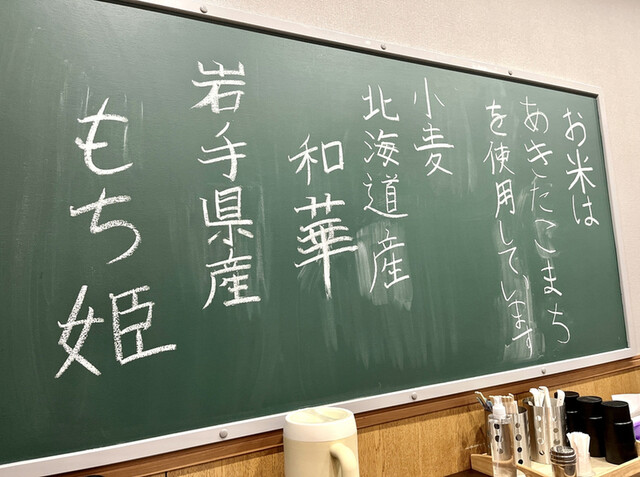 お米は
あきたこまち
を使用しています
小麦
北海道産
和華
岩手県産
もち姫